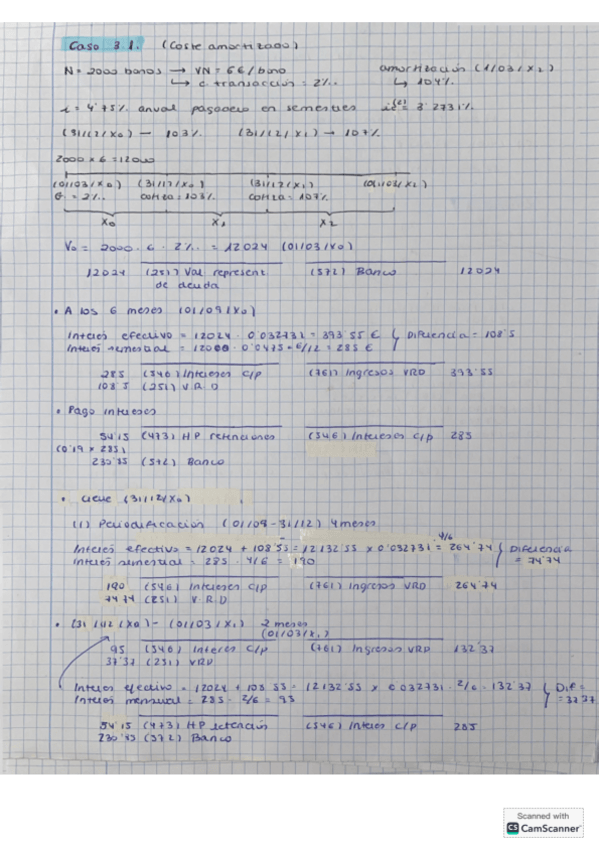 Caso 3.1. (Coste amortizado)
N = 2000 bonos → VN = 6€/bono amortización (1/03/x2)
↳ c. transacción = 2‰ ↳ 104%
i = 4'75% anual pagadero en semestres i(2) = 3'2731%
(31/12/x0) — 103% (31/12/x1) → 107%
2000 x 6 = 12000
(01/03/x0) (31/12/x0) (31/12/x1) (01/03/x2)
G = 2‰ cotiza: 103% cotiza: 107%
x0 x1 x2
V0 = 2000 · 6 · 2‰ = 12024 (01/03/x0)
12024 (251) Val represent (572) Banco 12024
de deuda
• A los 6 meses (01/09/x0)
Interés efectivo = 12024 · 0'032731 = 393'55 € } Diferencia = 108'5
Interés semestral = 12000 · 0'0475 · 6/12 = 285 €
285 (546) Intereses c/p (761) Ingresos VRD 393'55
108'5 (251) V.R.D
• Pago intereses
54'15 (473) HP retenciones (546) Intereses c/p 285
(0'19 x 285)
230'85 (572) Banco
• Cierre (31/12/x0)
(1) Periodificación (01/09 - 31/12) 4 meses
Interés efectivo = 12024 + 108'55 = 12132'55 x 0'032731 4/6 = 264'74 } Diferencia
Interés semestral = 285 · 4/6 = 190 = 74'74
190 (546) Intereses c/p (761) Ingreso VRD 264'74
74'74 (251) V.R.D
• (31/12/x0) - (01/03/x1) 2 meses
(01/03/x1)
95 (546) Interés c/p (761) Ingresos VRD 132'37
37'37 (251) VRD
Interés efectivo = 12024 + 108'55 = 12132'55 x 0'032731 · 2/6 = 132'37 } Dif =
Interés mensual = 285 · 2/6 = 95 = 37'37
54'15 (473) HP retención (546) Interés c/p 285
230'85 (572) Banco
Scanned with
CS CamScanner